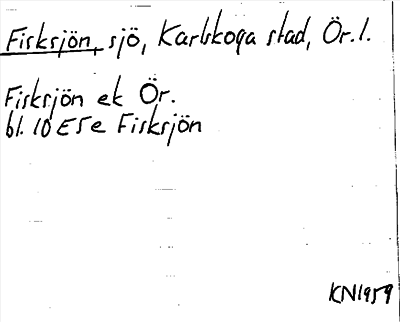 Fisksjön, sjö, Karlskoga stad, Ör. l.
Fisksjön ek Ör.
bl. 10 E 5 e Fisksjön
KN 1959